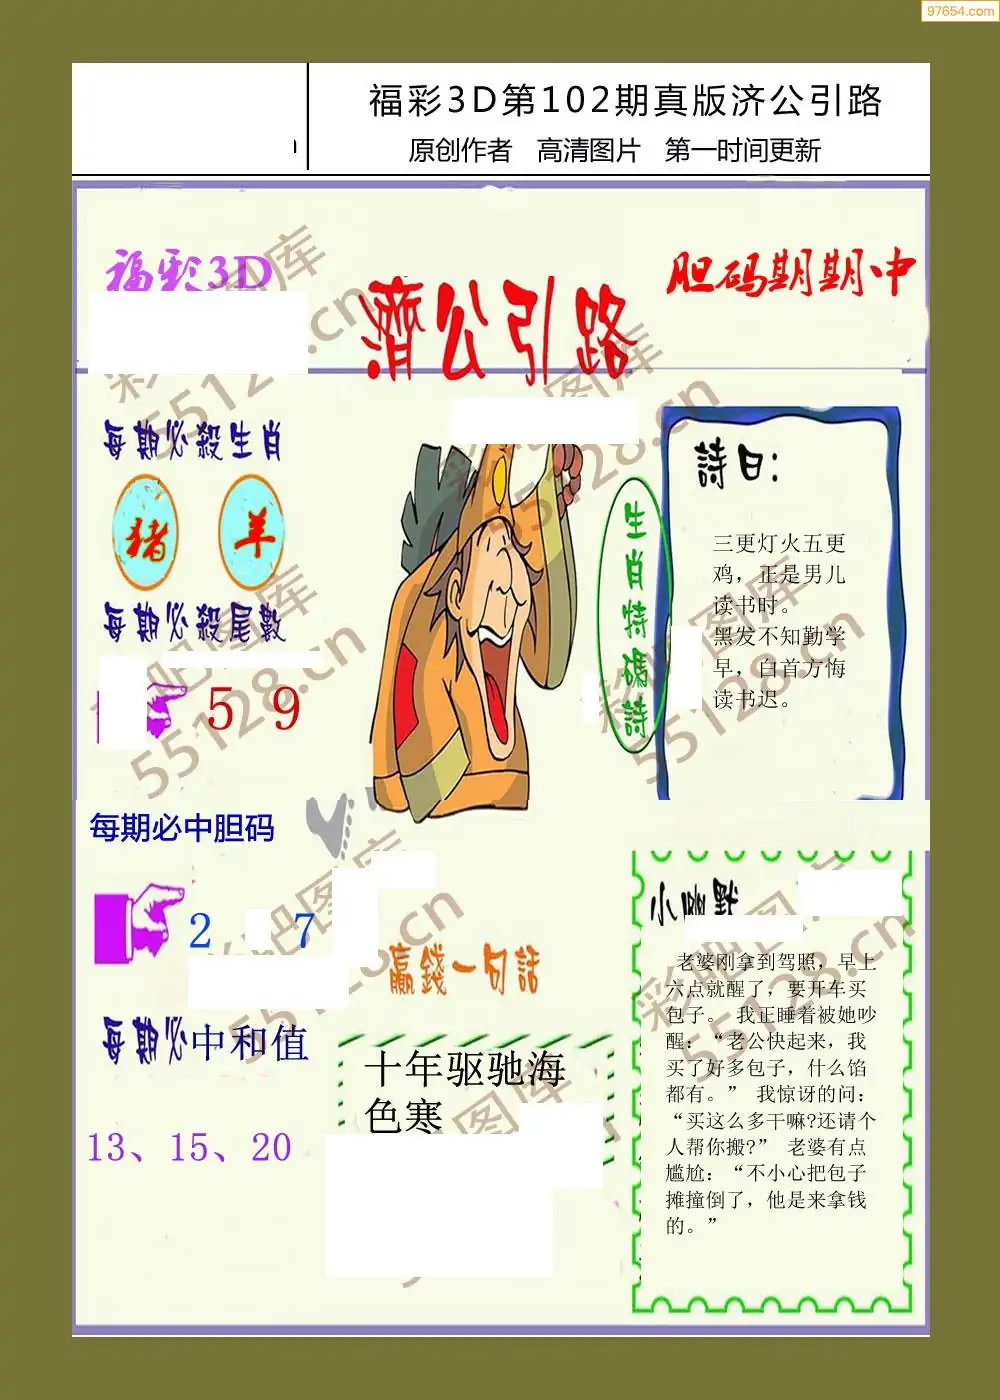 97654.com
福彩3D第102期真版济公引路
原创作者 高清图片 第一时间更新
福彩3D
濟公引路
胆码期期中
每期必殺生肖
猪 羊
每期必殺尾數
5 9
每期必中胆码
2 7
每期必中和值
13、15、20
生肖特碼詩
詩曰：
三更灯火五更
鸡，正是男儿
读书时。
黑发不知勤学
早，白首方悔
读书迟。
赢錢一句話
十年驱驰海
色寒
小幽默
老婆刚拿到驾照，早上
六点就醒了，要开车买
包子。 我正睡着被她吵
醒：“老公快起来，我
买了好多包子，什么馅
都有。” 我惊讶的问：
“买这么多干嘛?还请个
人帮你搬?” 老婆有点
尴尬：“不小心把包子
摊撞倒了，他是来拿钱
的。”
彩吧图库
55128.cn